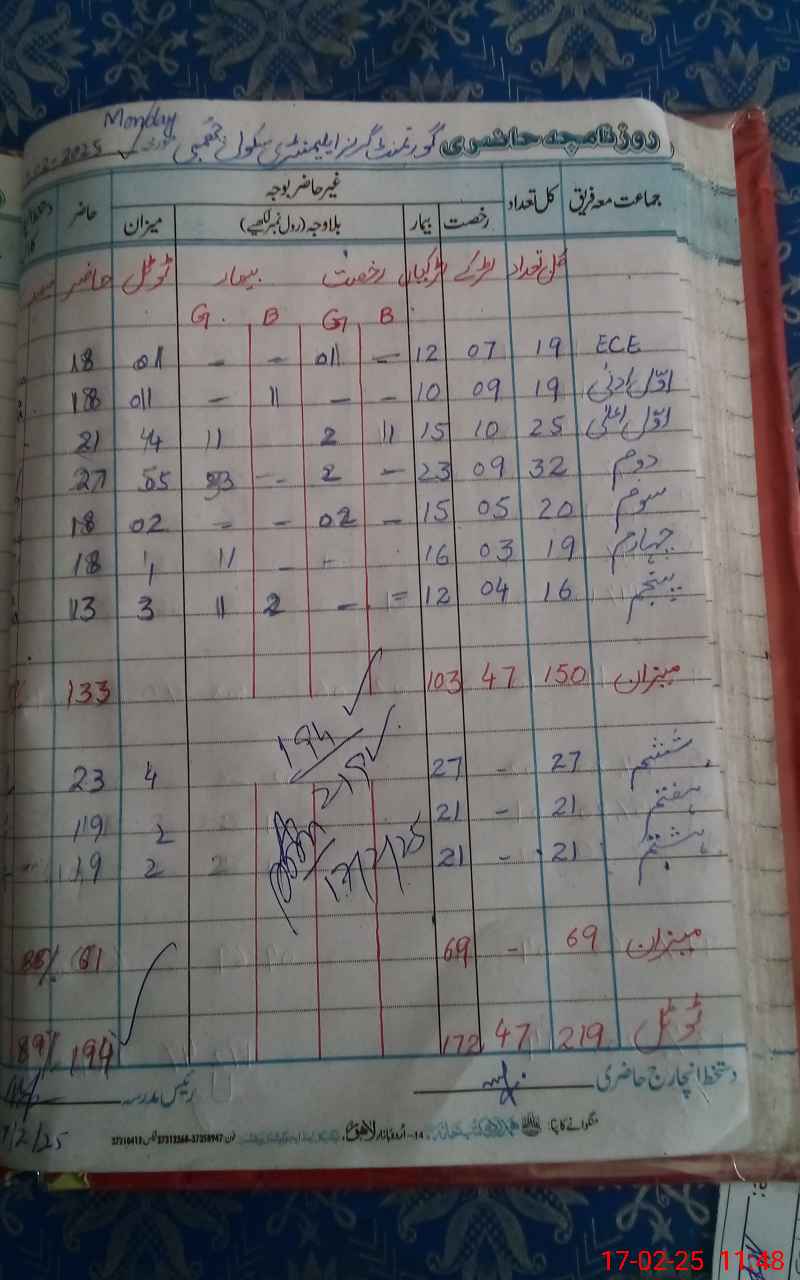 Monday
روزنامچہ حاضری گورنمنٹ گرلز ایلیمنٹری سکول 2025
جماعت معہ فریق کل تعداد غیر حاضر بوجہ حاضر
رخصت بیمار بلاوجہ (رول نمبر لکھیے) میزان
کل تعداد لڑکے لڑکیاں رخصت بیمار ٹوٹل حاضر
B G B G
ECE 19 07 12 – 01 – – 01 18
اوّل ادنیٰ 19 09 10 – – 1 – 01 18
اوّل اعلیٰ 25 10 15 1 2 1 4 21
دوم 32 09 23 – 2 – 3 05 27
سوم 20 05 15 – 02 – – 02 18
چہارم 19 03 16 – – 1 1 18
پنجم 16 04 12 – – 2 1 3 13
میزان 150 47 103 133
194
219
ششم 27 – 27 4 23
ہفتم 21 – 21 2 19
ہشتم 21 – 21 2 19
17/2/25
میزان 69 – 69 61 88%
ٹوٹل 219 47 172 194 89%
دستخط انچارج حاضری رئیس مدرسہ
/2/25
منگوانے کا پتہ: 14-اردو بازار لاہور
17-02-25 11:48